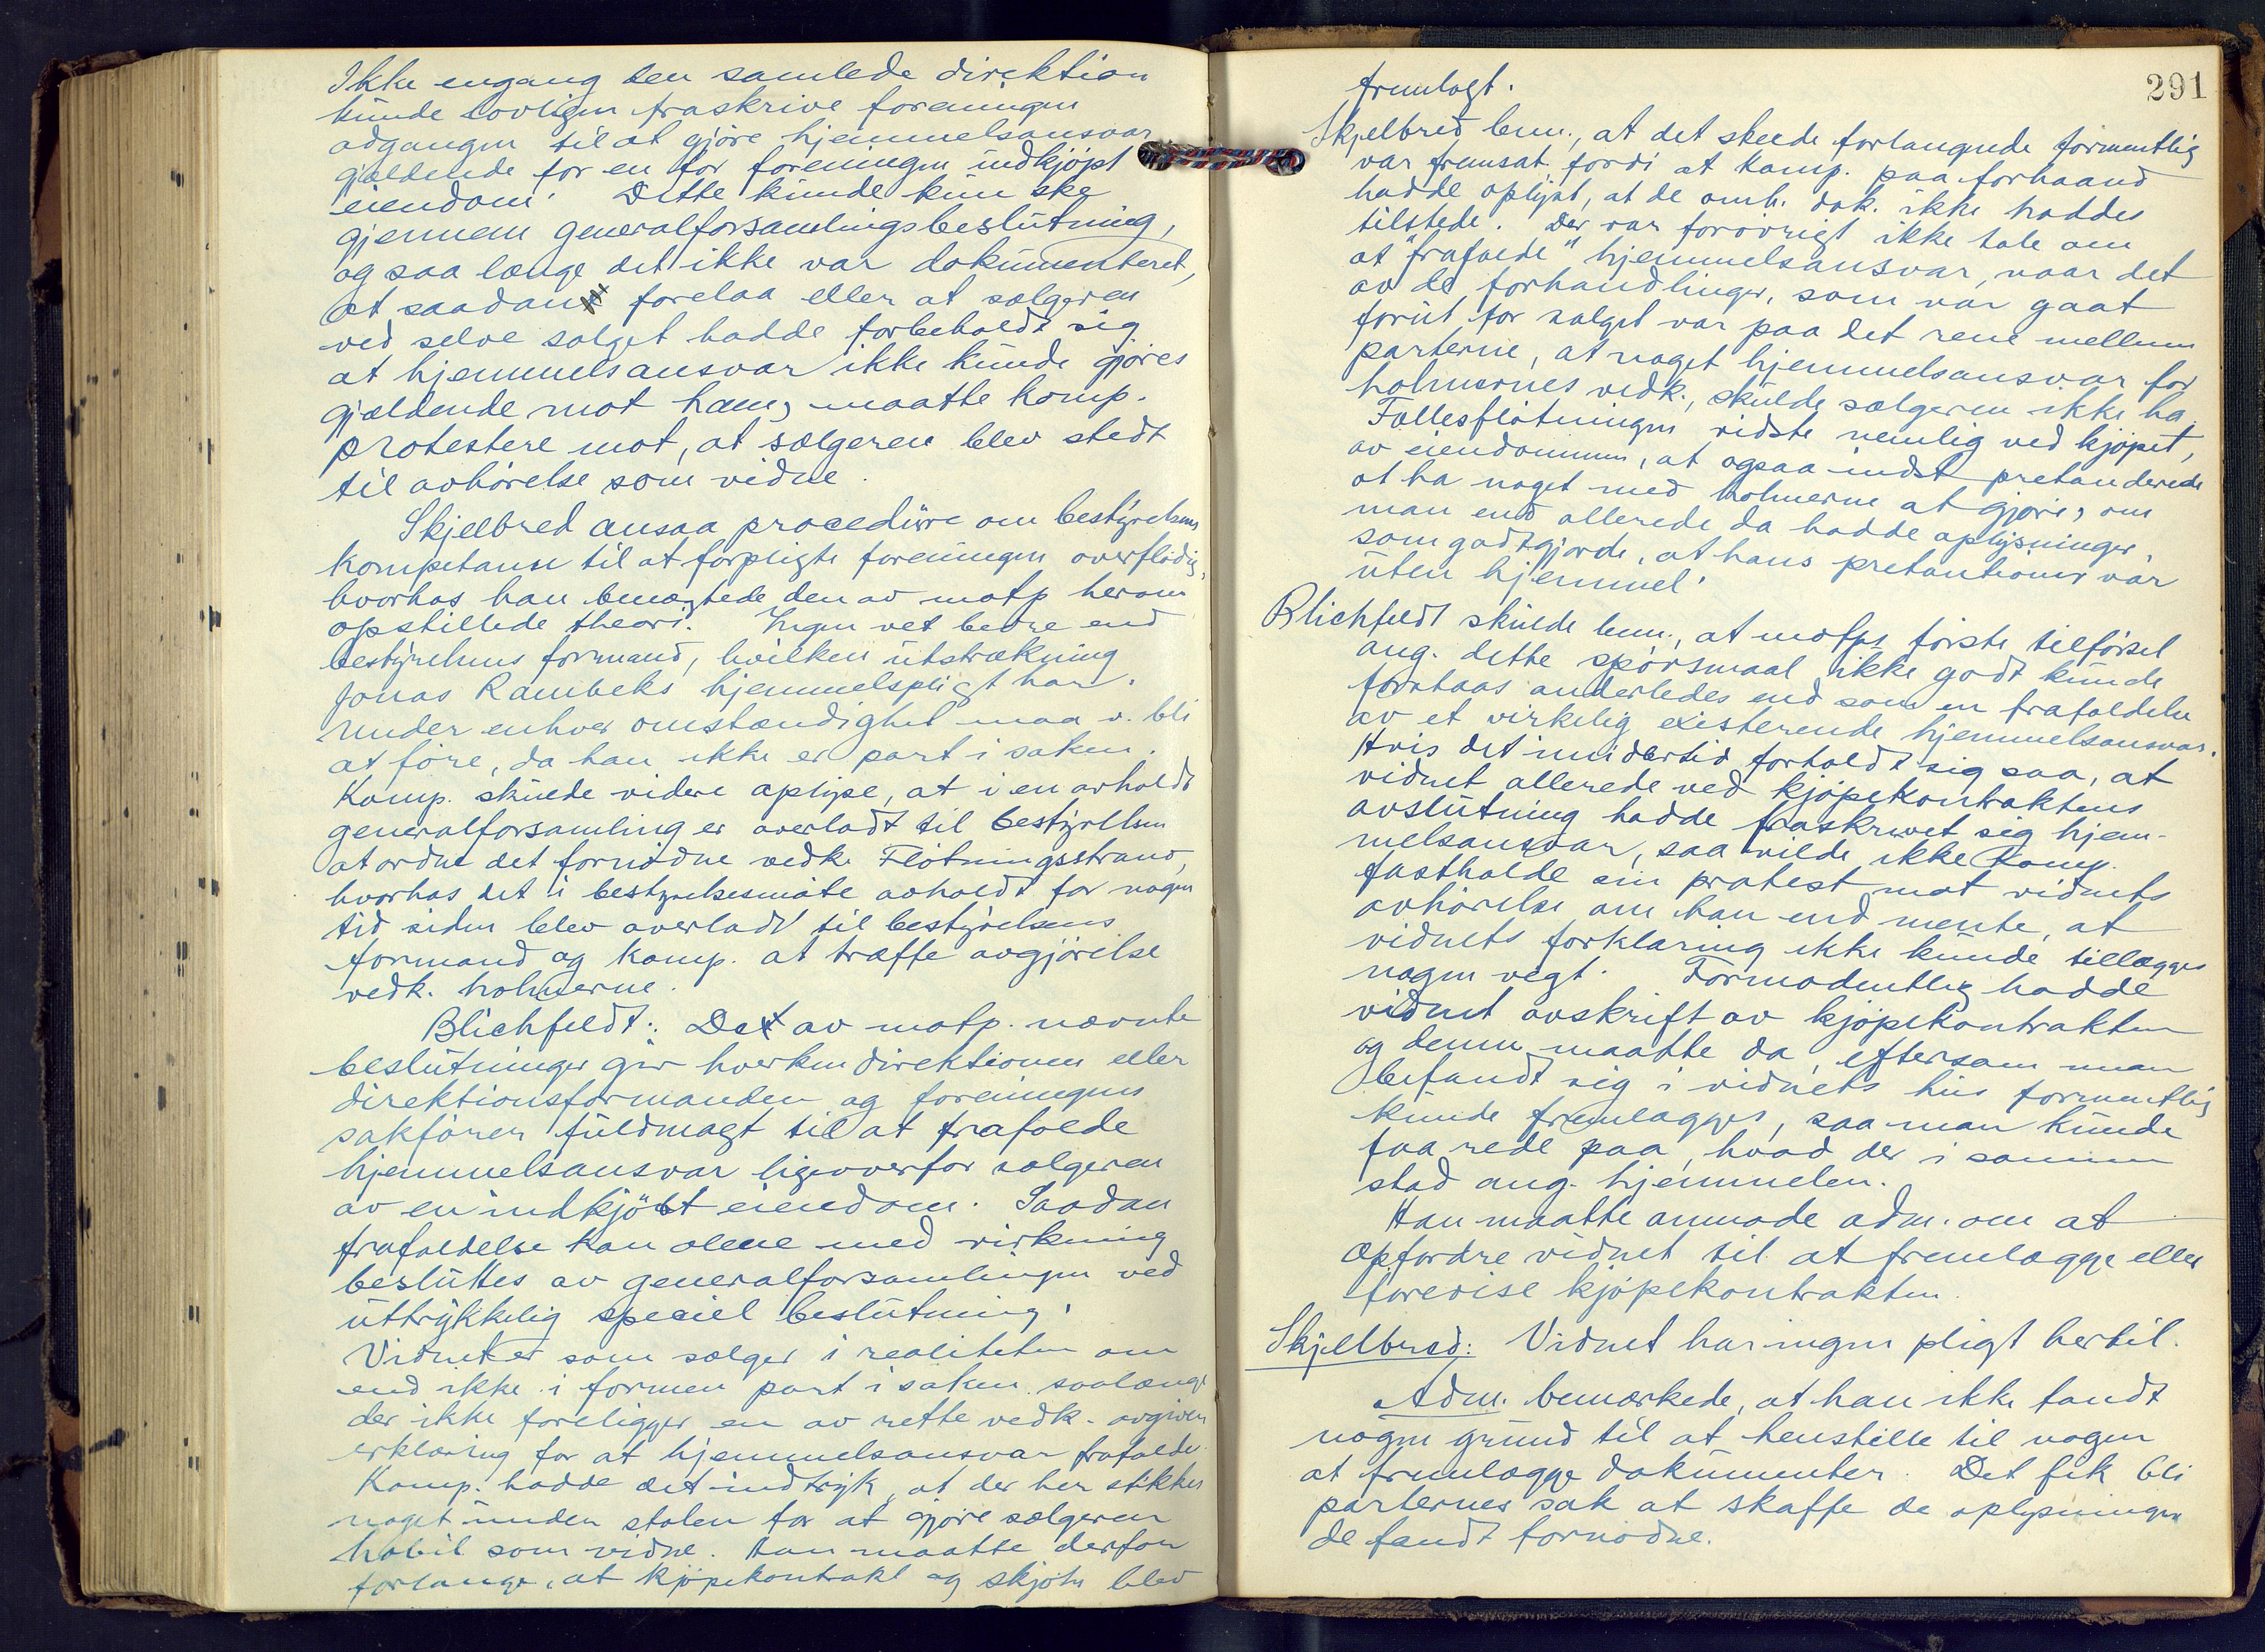 Ikke engang den samlede direktion
kunde lovligen fraskrive foreningen
adgangen til at gjöre hjemmelsansvar
gjældende for en for foreningen indkjöpt
eiendom. Dette kunde kun ske
gjennem generalforsamlingsbeslutning,
og saa længe det ikke var dokumenteret,
at saadan forelaa eller at sælgeren
ved selve salget hadde forbeholdt sig
at hjemmelsansvar ikke kunde gjöres
gjældende mot ham, maatte komp.
protestere mot, at sælgeren blev stedt
til avhörelse som vidne.
Skjelbred ansaa procedure om bestyrelsens
kompetanse til at forpligte foreningen overflödig,
hvorhos han benægtede den av motp herom
opstillede theori. Ingen vet bedre end
bestyrelsens formand, hvilken utstrækning
Jonas Rambeks hjemmelspligt har.
Under enhver omstændighet maa v. bli
at före, da han ikke er part i saken.
Komp. skulde videre oplyse, at i en avholdt
generalforsamling er overladt til bestyrelsen
at ordne det fornödne vedk. Flötningsstrand,
hvorhos det i bestyrelsesmöte avholdt for nogen
tid siden blev overladt til bestyrelsens
formand og komp. at træffe avgjörelse
vedk. holmerne.
Blichfeldt: Det av motp. nævnte
beslutninger gir hverken direktionen eller
direktionsformanden og foreningens
sakförer fuldmagt til at frafalde
hjemmelsansvar ligeoverfor sælgeren
av en indkjöbt eiendom. Saadan
frafaldelse kan alene med virkning
besluttes av generalforsamlingen ved
uttrykkelig speciel beslutning.
Vidnet er som sælger i realiteten om
end ikke i formen part i saken saalænge
der ikke foreligger en av rette vedk. avgiven
erklæring for at hjemmelsansvar frafaldes.
Komp. hadde det indtryk, at der her stikkes
noget under stolen for at gjöre sælgeren
habil som vidne. Han maatte derfor
forlange, at kjöpekontrakt og skjöte blev
291
fremlagt.
Skjelbred bem., at det skeede forlangende formentlig
var fremsat fordi at komp. paa forhaand
hadde oplyst, at de omh. dok. ikke haddes
tilstede. Der var forövrigt ikke tale om
at "frafalde" hjemmelsansvar, naar det
av de forhandlinger, som var gaat
forut for salget var paa det rene mellem
parterne, at noget hjemmelsansvar for
holmernes vedk., skulde sælgeren ikke ha.
Fællesflötningen vidste nemlig ved kjöpet,
av eiendommen, at ogsaa indst pretenderede
at ha noget med holmerne at gjöre, om
man end allerede da hadde oplysninger,
som godtgjorde, at hans pretentioner var
uten hjemmel.
Blichfeldt skulde bem., at motps förste tilförsel
ang. dette spörsmaal ikke godt kunde
forstaas anderledes end som en frafaldelse
av et virkelig existerende hjemmelsansvar.
Hvis det imidlertid forholdt sig saa, at
vidnet allerede ved kjöpekontraktens
avslutning hadde fraskrevet sig hjem-
melsansvar, saa vilde ikke komp.
fastholde sin protest mot vidnets
avhörelse om han end mente, at
vidnets forklaring ikke kunde tillægges
nogen vegt. Formodentlig hadde
vidnet avskrift av kjöpekontrakten
og denne maatte da, eftersom man
befandt sig i vidnets hus formentlig
kunde fremlægges, saa man kunde
faa rede paa, hvad der i samme
stod ang. hjemmelen.
Han maatte anmode adm. om at
opfordre vidnet til at fremlægge eller
forevise kjöpekontrakten.
Skjelbred: Vidnet har ingen pligt hertil.
Adm. bemærkede, at han ikke fandt
nogen grund til at henstille til nogen
at fremlægge dokumenter. Det fik bli
parternes sak at skaffe de oplysninger
de fandt fornödne.